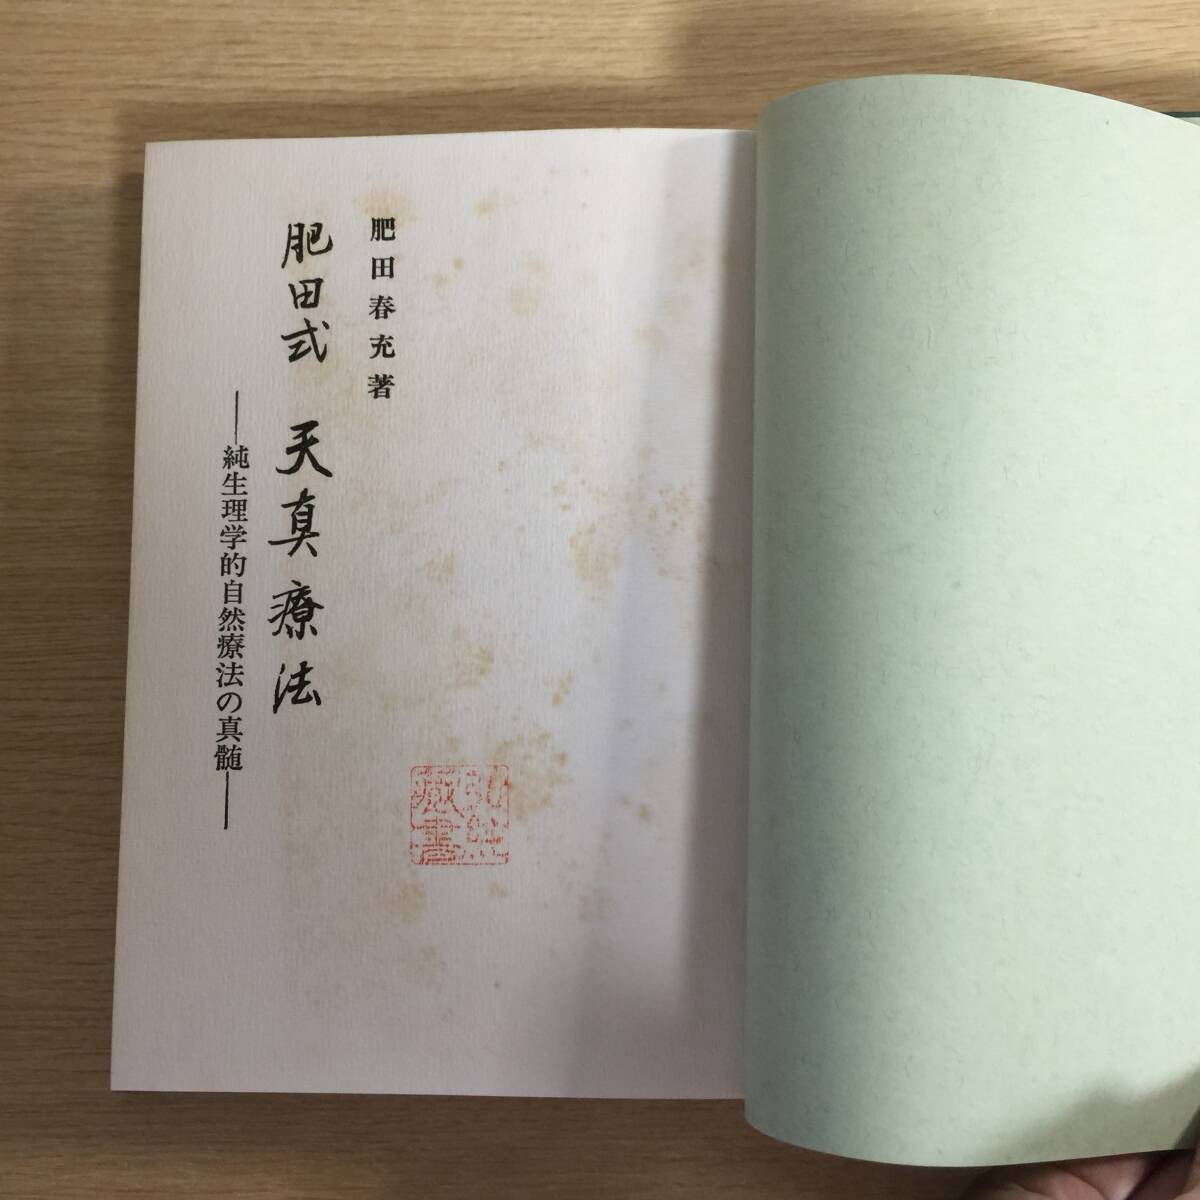 肥田春充著
肥田式 天真療法
―純生理学的自然療法の真髄―
蔵書